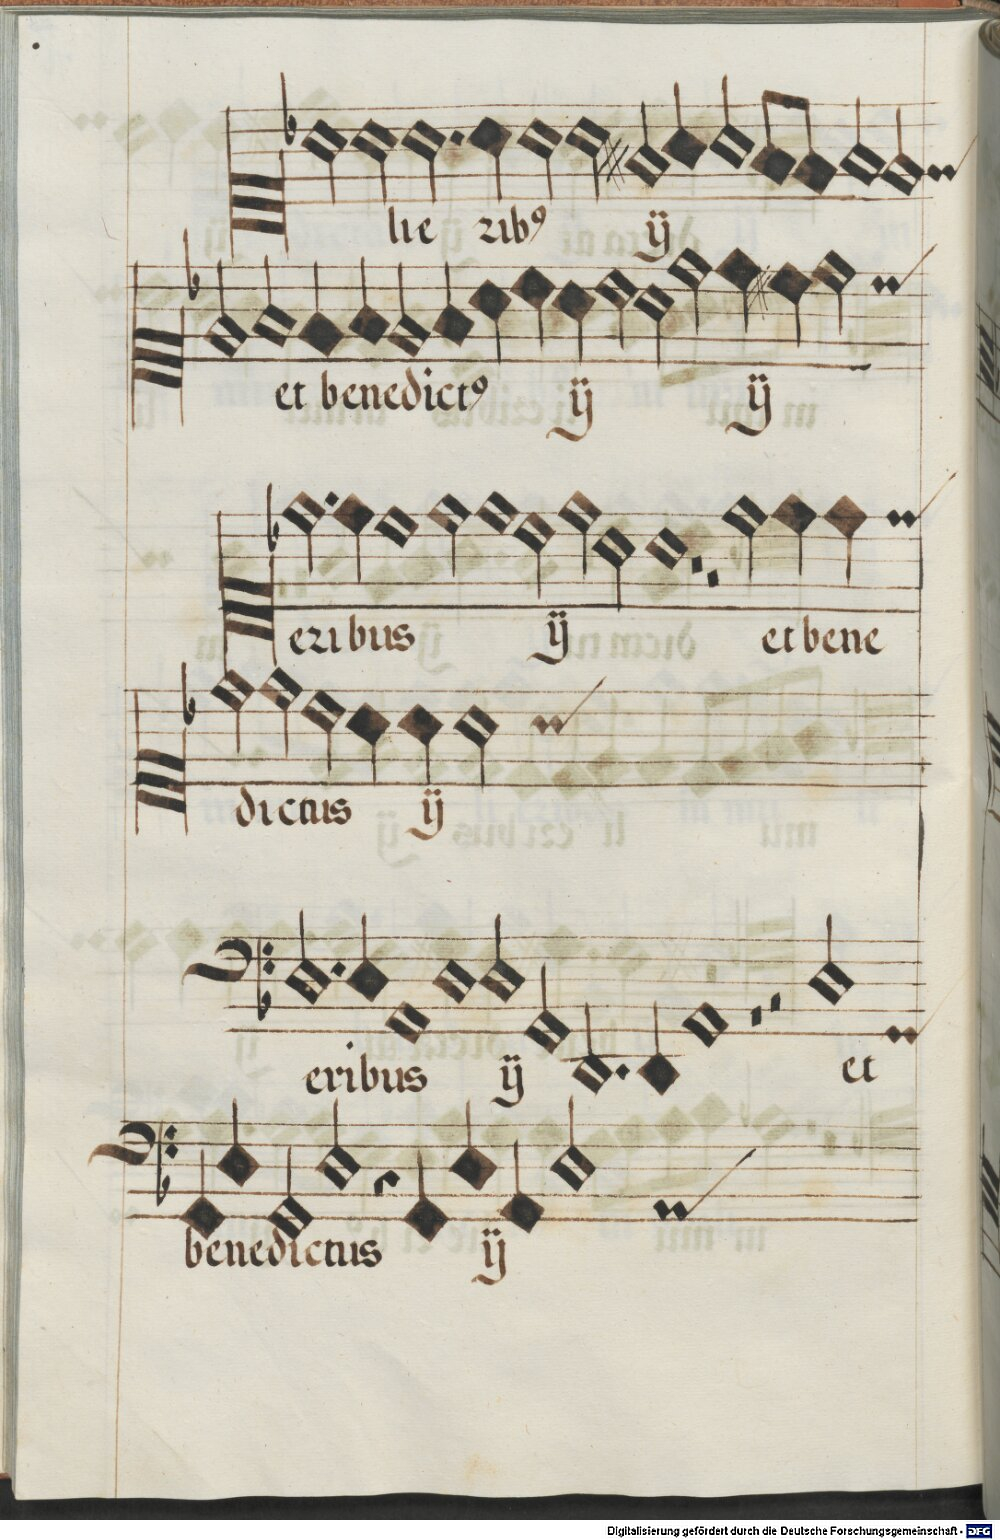 lie ribꝰ ij
et benedictꝰ ij ij
eribus ij et bene
dictus ij
eribus ij et
benedictus ij
Digitalisierung gefördert durch die Deutsche Forschungsgemeinschaft - DFG